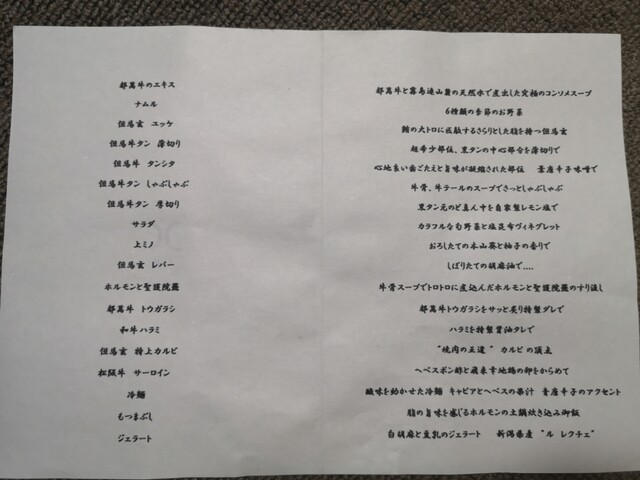 都萬牛のエキス
ナムル
但馬玄 ユッケ
但馬牛タン 薄切り
但馬牛 タンシタ
但馬牛タン しゃぶしゃぶ
但馬牛タン 厚切り
サラダ
上ミノ
但馬玄 レバー
ホルモンと聖護院蕪
都萬牛 トウガラシ
和牛ハラミ
但馬玄 特上カルビ
松阪牛 サーロイン
冷麺
もつまぶし
ジェラート
都萬牛と霧島連山麓の天然水で煮出した究極のコンソメスープ
6種類の季節のお野菜
鮪の大トロに匹敵するさらりとした脂を持つ但馬玄
超希少部位、黒タンの中心部分を薄切りで
心地良い歯ごたえと旨味が凝縮された部位 青唐辛子味噌で
牛骨、牛テールのスープでさっとしゃぶしゃぶ
黒タン元のど真ん中を自家製レモン塩で
カラフルな旬野菜と塩昆布ヴィネグレット
おろしたての本山葵と柚子の香りで
しぼりたての胡麻油で....
牛骨スープでトロトロに煮込んだホルモンと聖護院蕪のすり流し
都萬牛トウガラシをサッと炙り特製ダレで
ハラミを特製醤油タレで
"焼肉の王道" カルビの頂点
ヘベスポン酢と飛来幸地鶏の卵をからめて
酸味を効かせた冷麺 キャビアとヘベスの果汁 青唐辛子のアクセント
脂の旨味を感じるホルモンの土鍋炊き込み御飯
白胡麻と豆乳のジェラート 新潟県産 "ル レクチェ"